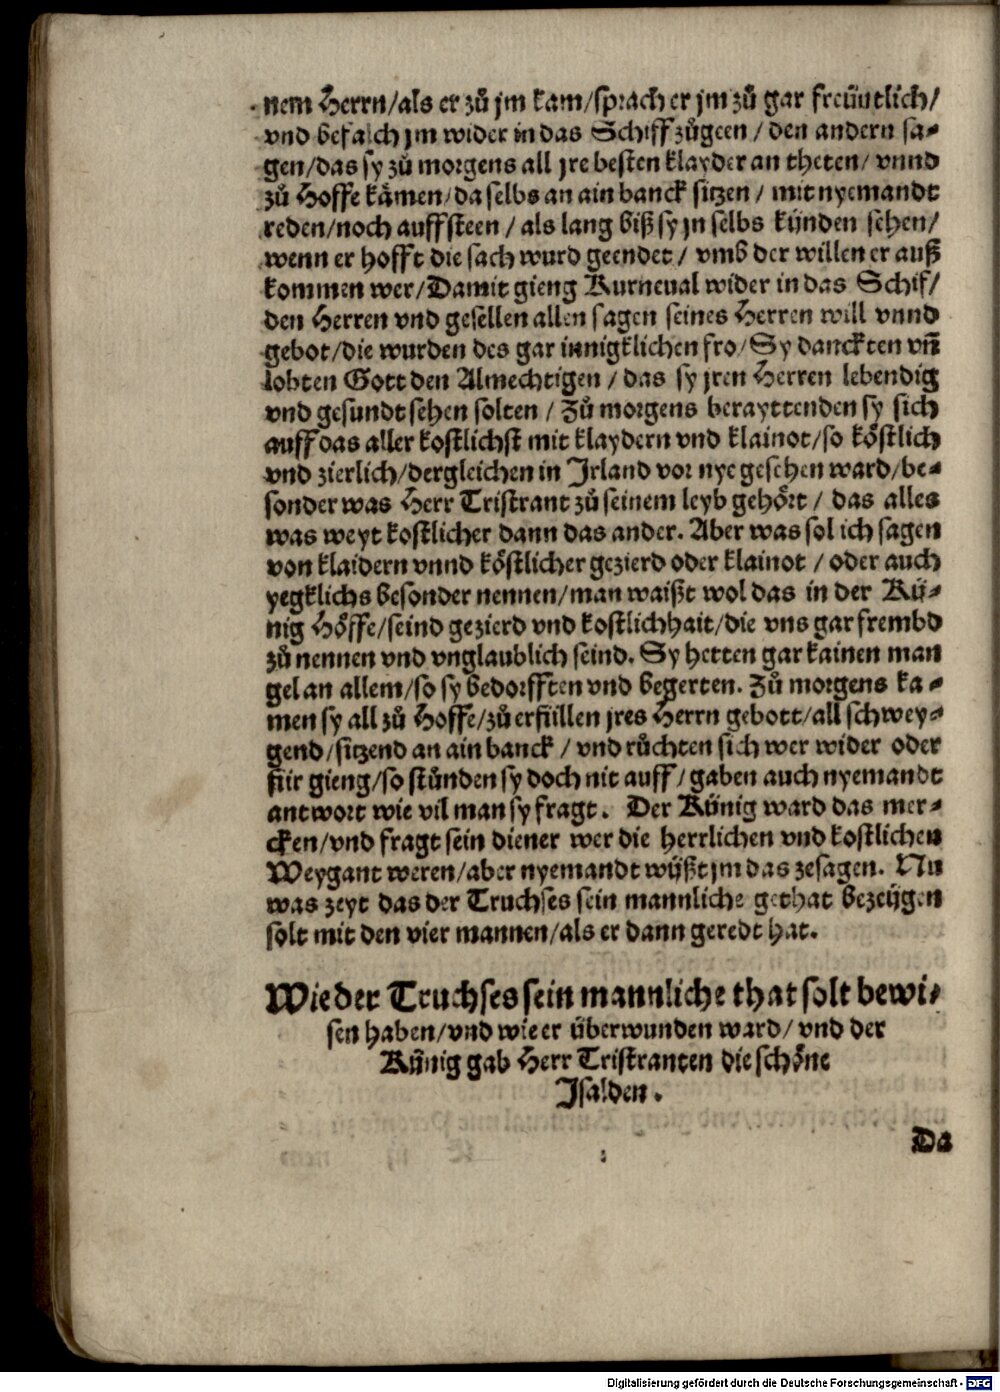 nem Herrn/als er zů jm kam/sprach er jm zů gar freüntlich/
vnd befalch jm wider in das Schiff zůgeen / den andern sa-
gen/das sy zů morgens all jre besten klayder an theten/ vnnd
zů Hoffe kämen/da selbs an ain banck sitzen / mit nyemandt
reden/noch auffsteen / als lang biß sy jn selbs künden sehen/
wenn er hofft die sach wurd geendet / vmb der willen er auß
kommen wer/Damit gieng Kurneual wider in das Schif/
den Herren vnd gesellen allen sagen seines Herren will vnnd
gebot/die wurden des gar innigklichen fro/Sy danckten vñ
lobten Gott den Almechtigen / das sy jren Herren lebendig
vnd gesundt sehen solten / Zů morgens berayttenden sy sich
auff das aller kostlichst mit klaydern vnd klainot/so köstlich
vnd zierlich/dergleichen in Jrland vor nye gesehen ward/be-
sonder was Herr Tristrant zů seinem leyb gehört / das alles
was weyt kostlicher dann das ander. Aber was sol ich sagen
von klaidern vnnd köstlicher gezierd oder klainot / oder auch
yegklichs besonder nennen/man waißt wol das in der Kü-
nig Höffe/seind gezierd vnd kostlichhait/die vns gar frembd
zů nennen vnd vnglaublich seind. Sy hetten gar kainen man
gel an allem/so sy bedorfften vnd begerten. Zů morgens ka-
men sy all zů Hoffe/zů erfüllen jres Herrn gebott/all schwey-
gend/sitzend an ain banck / vnd růchten sich wer wider oder
für gieng/so stůnden sy doch nit auff/gaben auch nyemandt
antwort wie vil man sy fragt. Der Künig ward das mer-
cken/vnd fragt sein diener wer die herrlichen vnd kostlichen
Weygant weren/aber nyemandt wüßt jm das zesagen. Nu
was zeyt das der Truchses sein mannliche gethat bezeügen
solt mit den vier mannen/als er dann geredt hat.
Wie der Truchses sein mannliche that solt bewi-
sen haben/vnd wie er überwunden ward/ vnd der
Künig gab Herr Tristranten die schöne
Jsalden.
Da
Digitalisierung gefördert durch die Deutsche Forschungsgemeinschaft - DFG